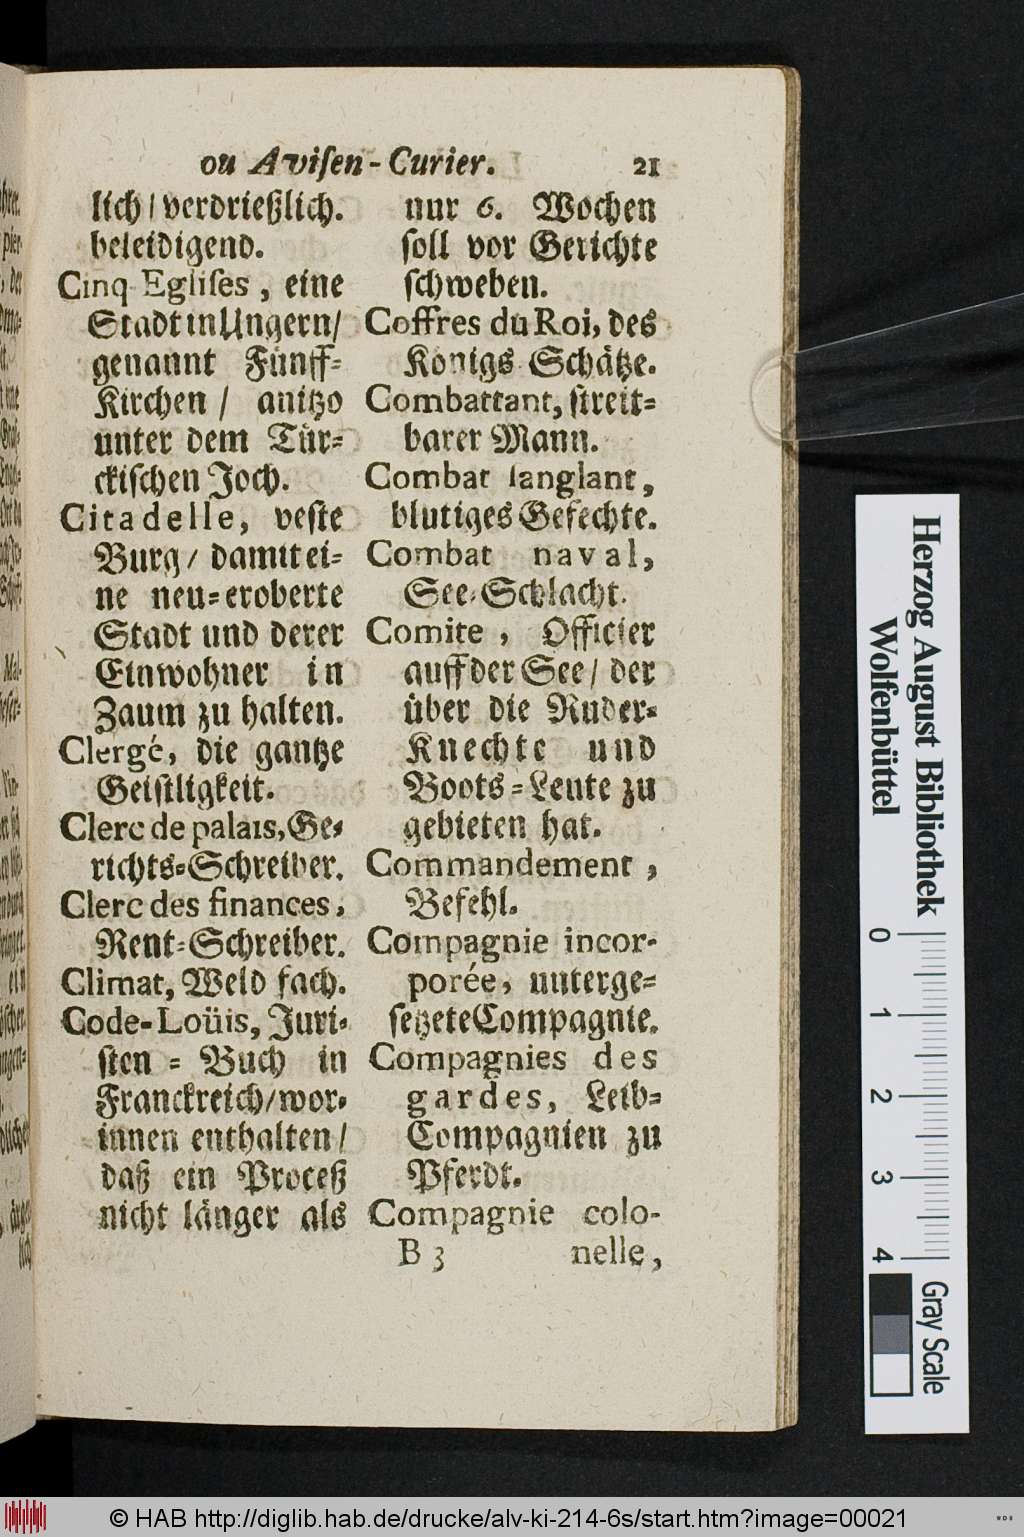 ou Aviſen-Curier. 21
lich / verdrießlich.
beleidigend.
Cinq Egliſes, eine
Stadt in Ungern/
genannt Fünff-
Kirchen / anitzo
unter dem Tür-
ckiſchen Joch.
Citadelle, veſte
Burg / damit ei-
ne neu-eroberte
Stadt und derer
Einwohner in
Zaum zu halten.
Clergé, die gantze
Geiſtligkeit.
Clerc de palais, Ge-
richts-Schreiber.
Clerc des finances,
Rent-Schreiber.
Climat, Weld fach.
Code-Loüis, Juri-
ſten-Buch in
Franckreich/wor-
innen enthalten /
daß ein Proceß
nicht länger als
nur 6. Wochen
ſoll vor Gerichte
ſchweben.
Coffres du Roi, des
Königs Schätze.
Combattant, ſtreit-
barer Mann.
Combat ſanglant,
blutiges Gefechte.
Combat naval,
See-Schlacht.
Comite, Officier
auff der See / der
über die Ruder-
Knechte und
Boots-Leute zu
gebieten hat.
Commandement,
Befehl.
Compagnie incor-
porée, unterge-
ſetzete Compagnie.
Compagnies des
gardes, Leib-
Compagnien zu
Pferdt.
Compagnie colo-
B 3 nelle,
Herzog August Bibliothek
Wolfenbüttel
0 1 2 3 4
Gray Scale
© HAB http://diglib.hab.de/drucke/alv-ki-214-6s/start.htm?image=00021